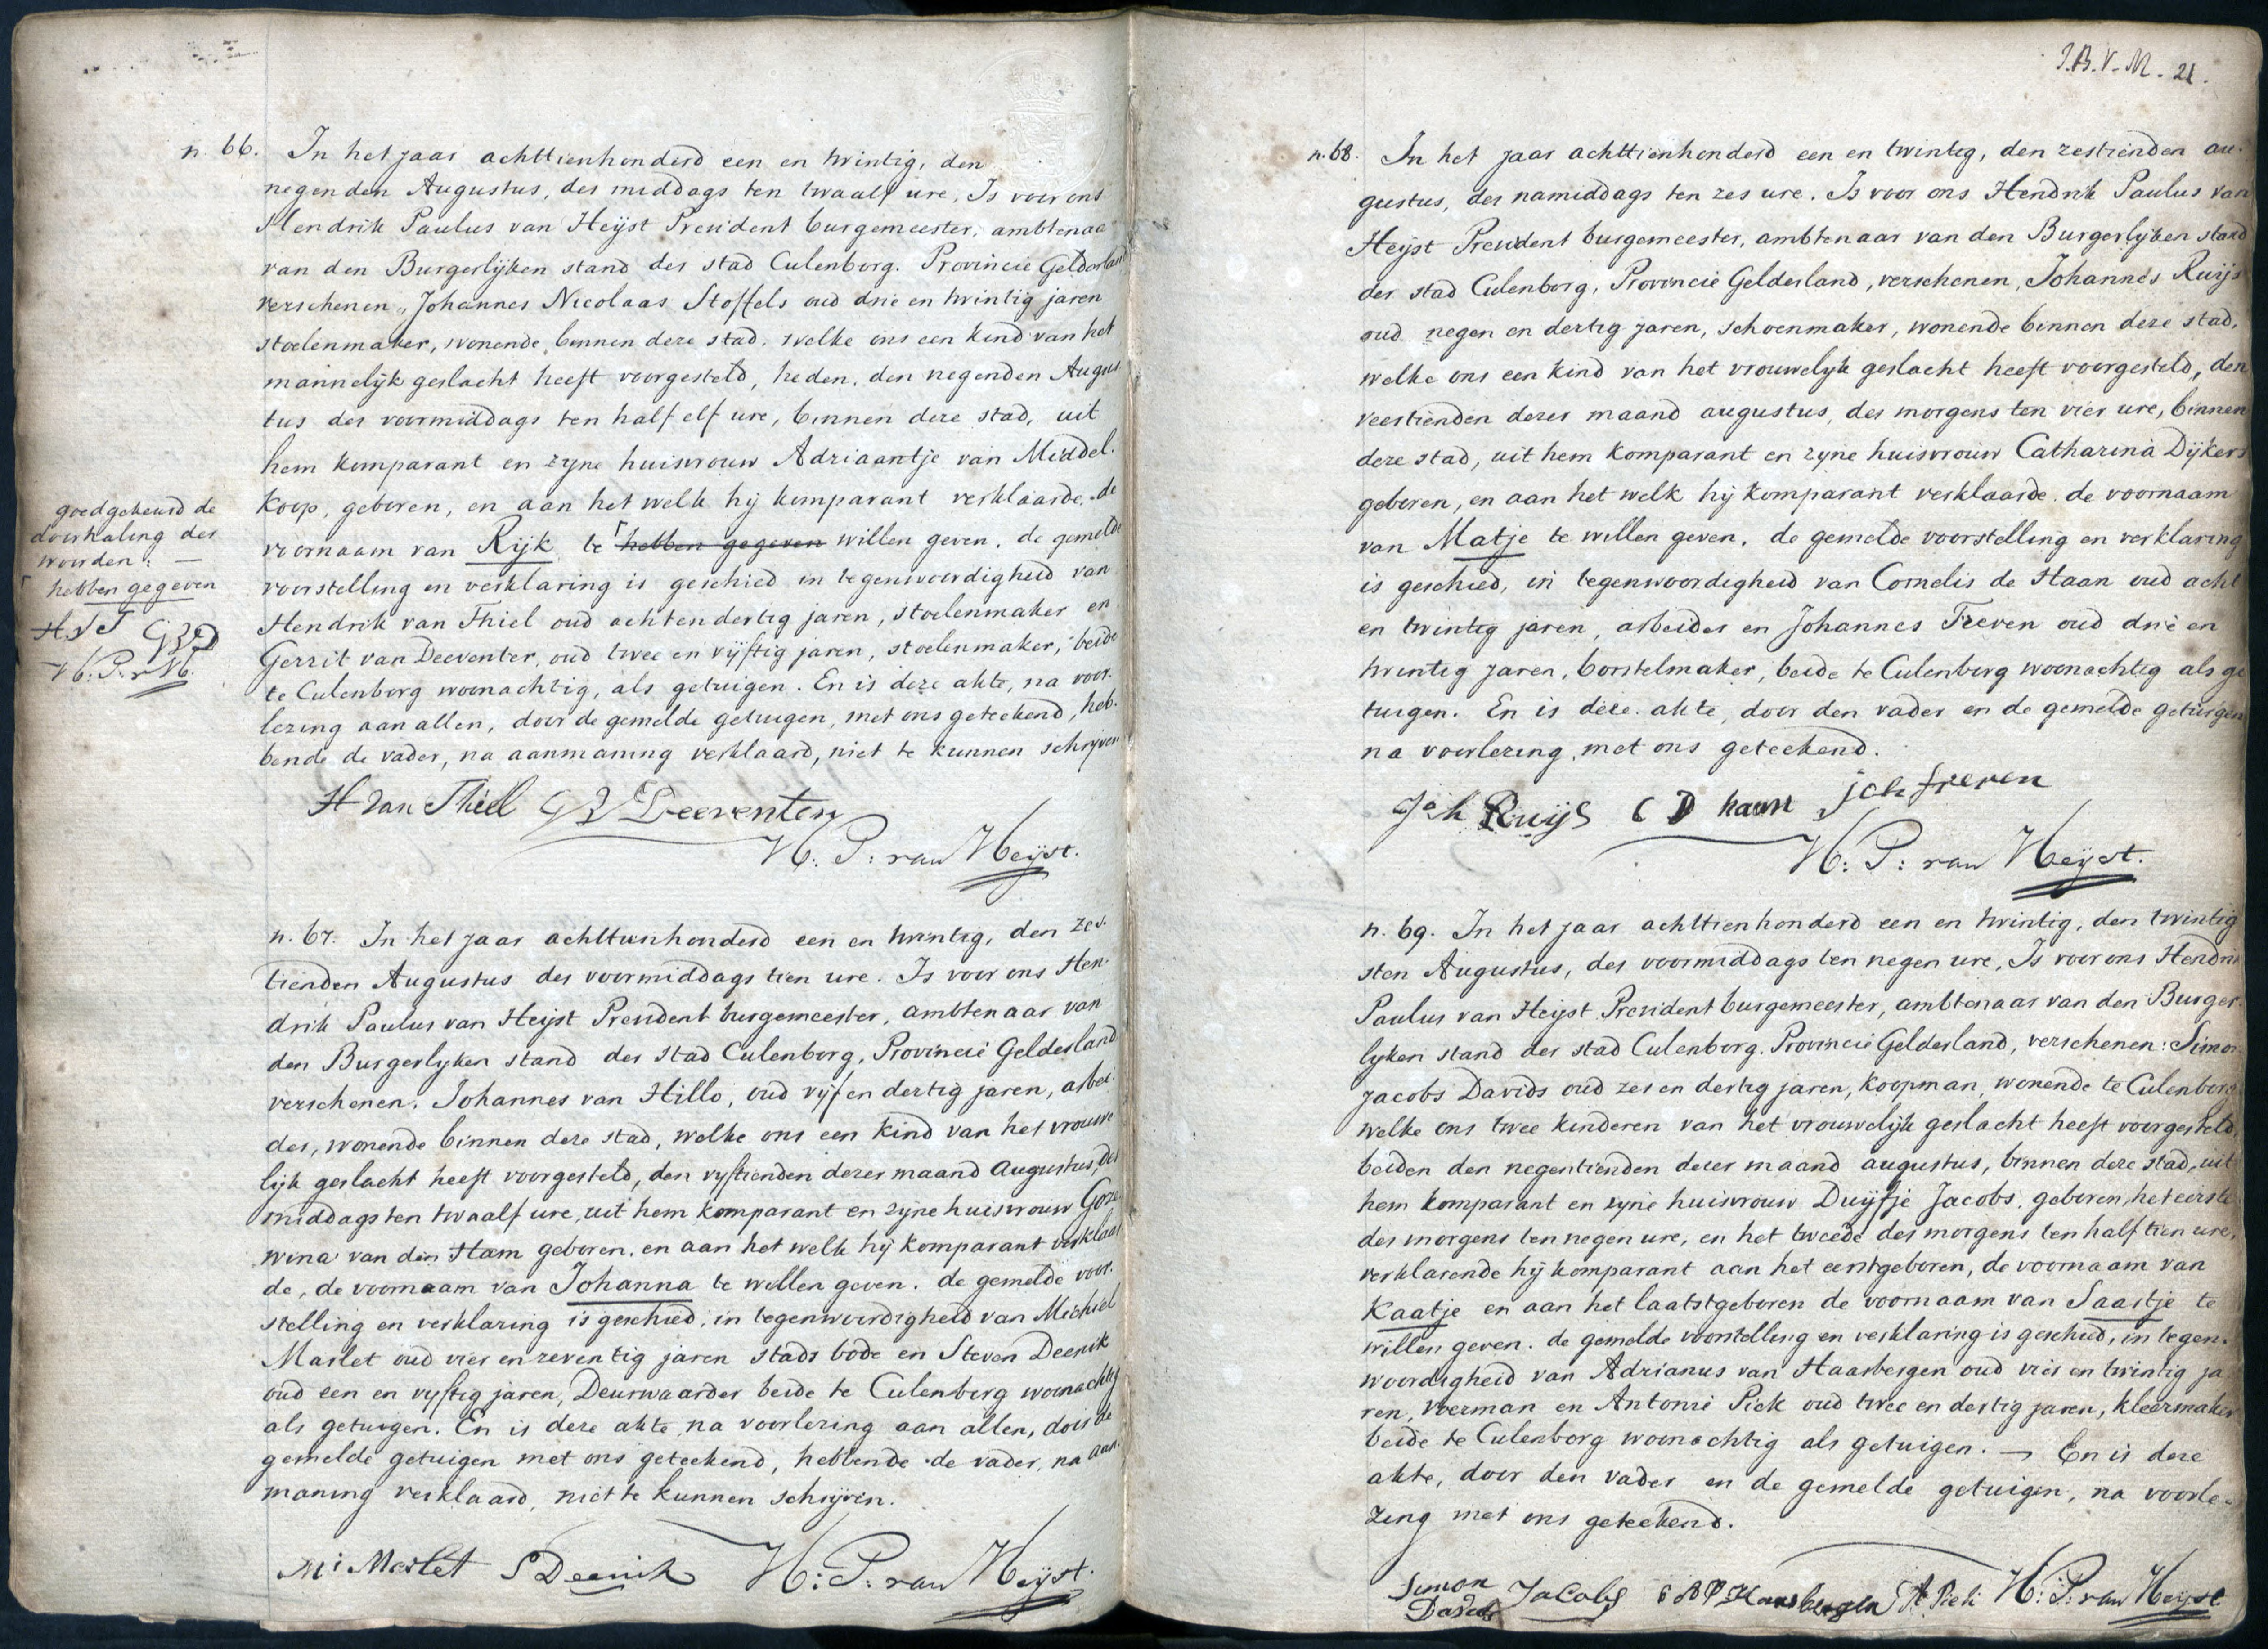 n. 66. In het jaar achttienhonderd een en twintig, den
negenden Augustus, des middags ten twaalf ure, Is voor ons
Hendrik Paulus van Heijst President burgemeester, ambtenaa
van den Burgerlijken stand der stad Culenborg. Provincie Gelderland
verschenen, Johannes Nicolaas Stoffels oud drie en twintig jaren
stoelenmaker, wonende binnen deze stad. welke ons een kind van het
mannelijk geslacht heeft voorgesteld, heden, den negenden Augus
tus des voormiddags ten half elf ure, binnen deze stad, uit
hem komparant en zyne huisvrouw Adriaantje van Middel.
koop, geboren, en aan het welk hij komparant verklaarde, de
voornaam van Rijk te hebben gegeven willen geven. de gemelde
voorstelling en verklaring is geschied in tegenwoordigheid van
Hendrik van Thiel oud acht en dertig jaren, stoelenmaker en
Gerrit van Deeventer, oud twee en vijftig jaren, stoelenmaker, beide
te Culenborg woonachtig, als getuigen. En is deze akte, na voor.
lezing aan allen, door de gemelde getuigen, met ons geteekend, heb.
bende de vader, na aanmaning verklaard, niet te kunnen schrijven
goedgekeurd de
doorhaling der
woorden: —
hebben gegeven
H.V.T GVD
H:P:v H.
H van Thiel GV Deeventer
H: P: van Heijst.
n. 67. In het jaar achttienhonderd een en twintig, den zes.
tienden Augustus des voormiddags tien ure. Is voor ons Hen.
drik Paulus van Heijst President burgemeester, ambtenaar van
den Burgerlyken stand der stad Culenborg, Provincie Gelderland
verschenen. Johannes van Hillo, oud vijf en dertig jaren, arbei.
der, wonende binnen deze stad, welke ons een kind van het vrouwe
lijk geslacht heeft voorgesteld, den vyftienden dezer maand Augustus, des
middags ten twaalf ure, uit hem komparant en zijne huisvrouw Goze.
wina van den Ham geboren, en aan het welk hij komparant verklaar
de, de voornaam van Johanna te willen geven. de gemelde voor.
stelling en verklaring is geschied, in tegenwoordigheid van Michiel
Maslet oud vier en zeventig jaren stads bode en Steven Deenik
oud een en vyftig jaren, Deurwaarder beide te Culenborg woonachtig
als getuigen. En is deze akte, na voorlezing aan allen, door de
gemelde getuigen met ons geteekend, hebbende de vader, na aan.
maning verklaard, niet te kunnen schrijven.
Mi Maslet S Deenik H: P: van Heijst.
J.B.V.M. 21.
n. 68. In het jaar achttienhonderd een en twinteg, den zestienden au.
gustus, des namiddags ten zes ure. Is voor ons Hendrik Paulus van
Heijst President burgemeester, ambtenaar van den Burgerlyken stand
der stad Culenborg, Provincie Gelderland, verschenen, Johannes Ruijs
oud negen en dertig jaren, schoenmaker, wonende binnen deze stad.
welke ons een kind van het vrouwelyk geslacht heeft voorgesteld, den
veertienden dezer maand augustus, des morgens ten vier ure, binnen
deze stad, uit hem komparant en zyne huisvrouw Catharina Dijkers
geboren, en aan het welk hij komparant verklaarde de voornaam
van Matje te willen geven. de gemelde voorstelling en verklaring
is geschied, in tegenwoordigheid van Cornelis de Haan oud acht
en twintig jaren, arbeider en Johannes Treven oud drie en
twintig jaren, borstelmaker, beide te Culenborg woonachtig als ge
tuigen. En is deze akte, door den vader en de gemelde getuigen
na voorlezing, met ons geteekend.
Joh Ruijs C D haan joh freven
H: P: van Heijst.
n. 69. In het jaar achttienhonderd een en twintig, den twintig
sten Augustus, des voormiddags ten negen ure, Is voor ons Hendrik
Paulus van Heijst President burgemeester, ambtenaar van den Burger
lyken stand der stad Culenborg. Provincie Gelderland, verschenen: Simon
Jacobs Davids oud zes en dertig jaren, koopman, wonende te Culenborg
welke ons twee kinderen van het vrouwelijk geslacht heeft voorgesteld,
beiden den negentienden dezer maand augustus, binnen deze stad, uit
hem komparant en zyne huisvrouw Duijfje Jacobs, geboren, het eerste
des morgens ten negen ure, en het tweede des morgens ten half tien ure,
verklarende hij komparant aan het eerstgeboren, de voornaam van
Kaatje en aan het laatstgeboren de voornaam van Saartje te
willen geven. de gemelde voorstelling en verklaring is geschied, in tegen.
woordigheid van Adrianus van Haarbergen oud vier en twintig ja
ren, Voerman en Antonie Piek oud twee en dertig jaren, kleermaker
beide te Culenborg woonachtig als getuigen. — En is deze
akte, door den vader en de gemelde getuigen, na voorle.
zing met ons geteekend.
Simon Jacobs Haarbergen A Piek H: P: van Heijst
Davids